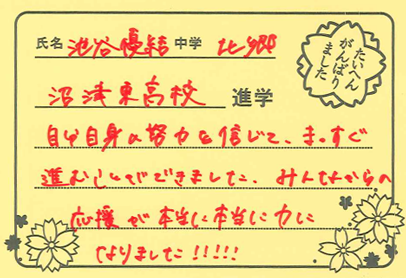 氏名 池谷優結 中学 北郷
たいへん
がんばり
ました
沼津東高校 進学
自分自身の努力を信じて、まっすぐ
進むことができました。みんなからの
応援が本当に本当に力に
なりました!!!!!